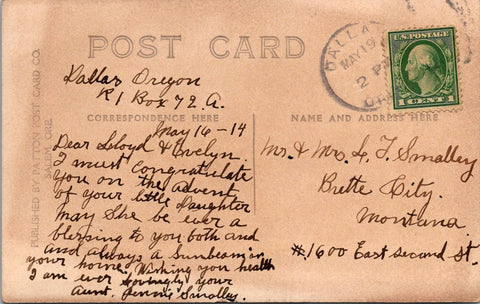 POST CARD
Dallas Oregon
R 1 Box 72. A.
CORRESPONDENCE HERE
NAME AND ADDRESS HERE
May 16-14
Dear Lloyd & Evelyn.
I must congratulate
you on the advent
of your little Daughter
may she be ever a
blessing to you both and
and always a Sunbeam in
your home, Wishing you health
I am ever lovingly your
Aunt. Jenny Smalley.
Mr. & Mrs. L. F. Smalley
Butte City.
Montana.
#1600 East Second St.
PUBLISHED BY PATTON POST CARD CO.
SALEM, ORE.
DALLA
MAY 19
2 P
U.S. POSTAGE
1 CENT 1